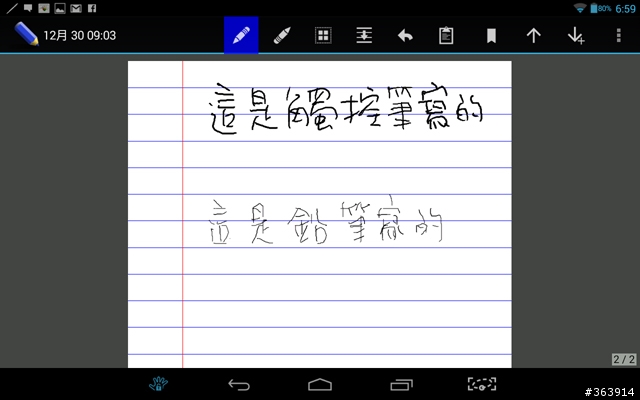 80% 6:59
12月 30 09:03
這是觸控筆寫的
這是鉛筆寫的
2 / 2
#363914